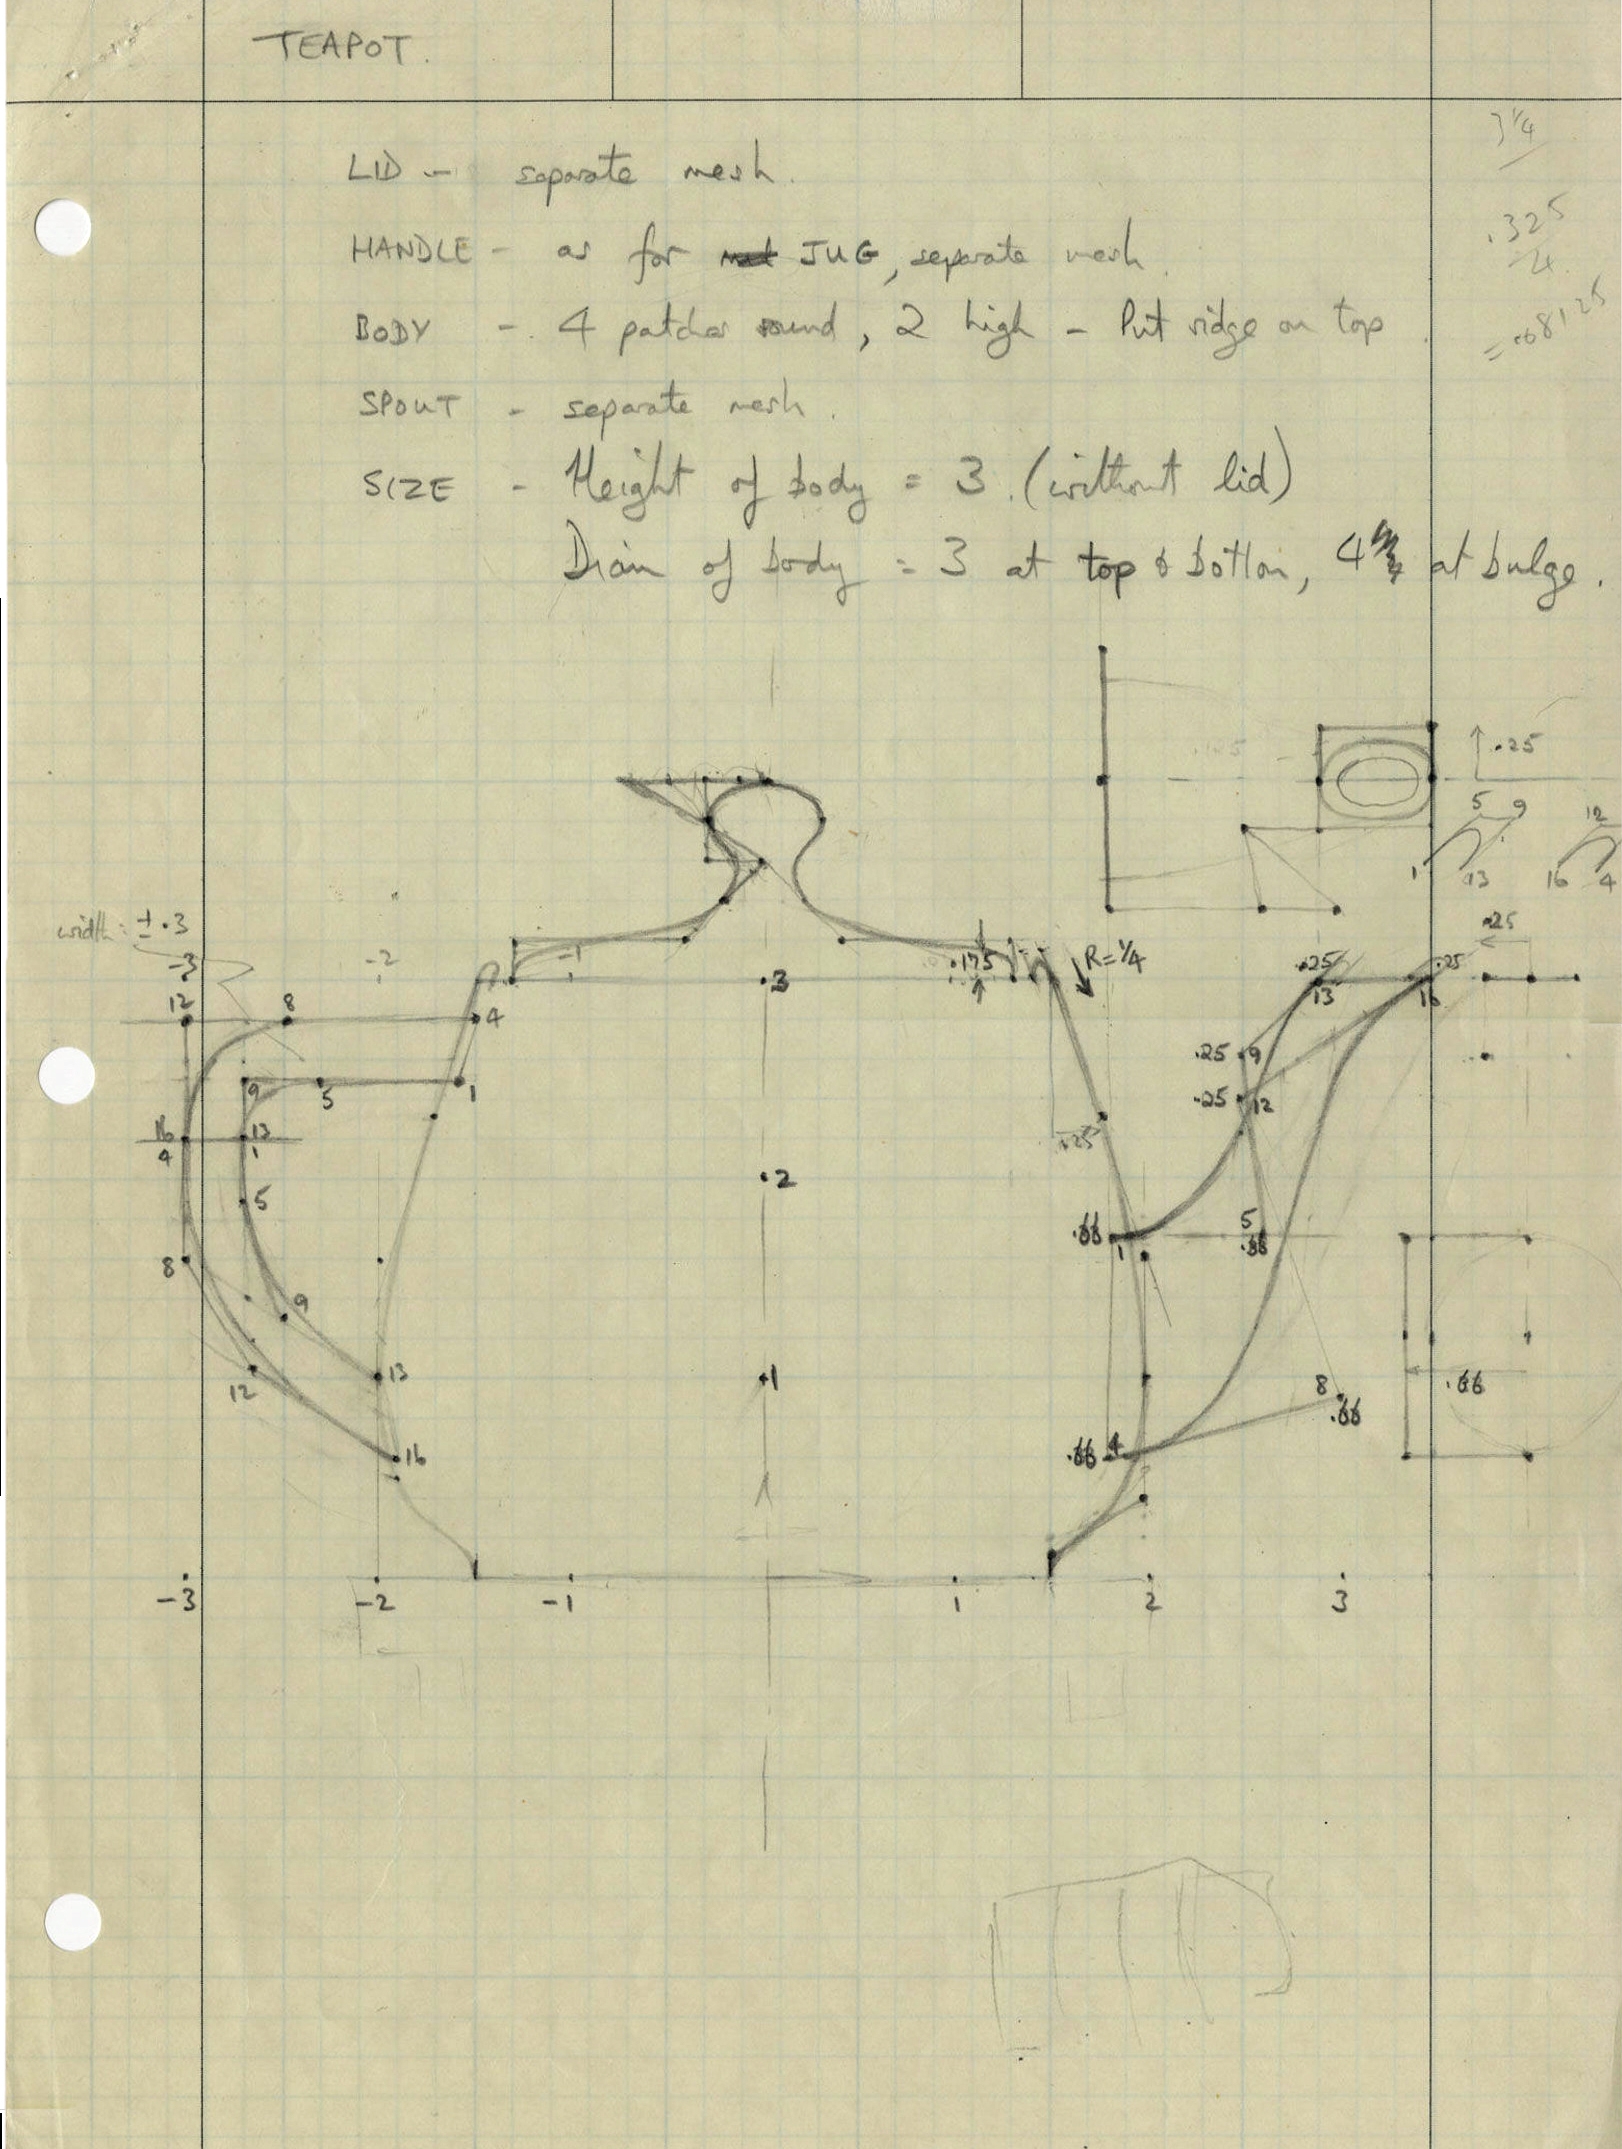 TEAPOT.
3 1/4
LID - separate mesh.
.325
4
HANDLE - as for JUG, separate mesh.
= .08125
BODY - 4 patches round, 2 high - Put ridge on top
SPOUT - separate mesh.
SIZE - Height of body = 3. (without lid)
Diam of body = 3 at top & bottom, 4 at bulge.
.25
5 9 12
1 13 16 4
width: ± .3
.25
-3 -2 -1 .175 R=1/4 .25 .25
3 13 16
12 8 4
.25 9
9 5 1
.25 12
16 13
4 1
.25
2
5
.66 1 5 .66
8
9
1 .66
13
8
12 .66
16 .66 4
-3 -2 -1 1 2 3